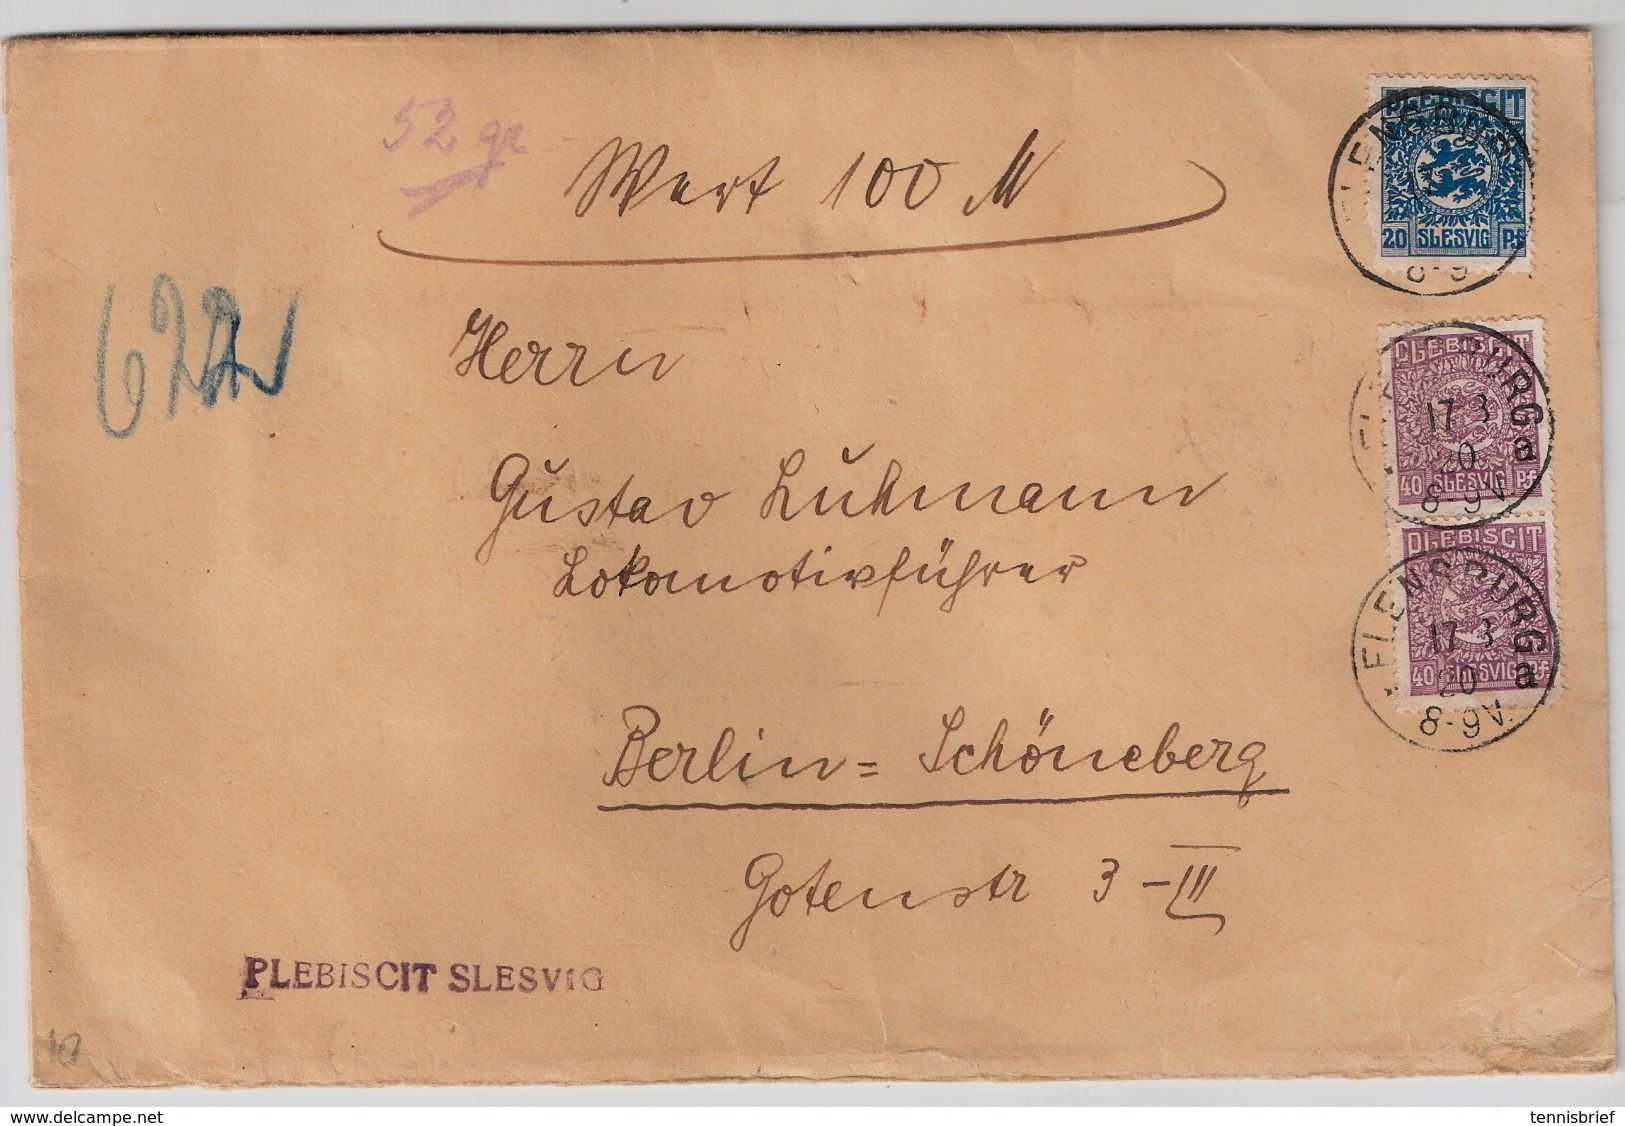 52 gr
Wert 100 M
PLEBISCIT
20 SLESVIG Pf
FLENSBURG
8-9
622
Herrn
PLEBISCIT
40 SLESVIG Pf
FLENSBURG a
17 3
20
8-9V.
Gustav Luhmann
Lokomotivführer
PLEBISCIT
40 SLESVIG Pf
FLENSBURG a
17 3
20
8-9V.
Berlin=Schöneberg
Gotenstr 3-III
PLEBISCIT SLESVIG
www.delcampe.net
tennisbrief